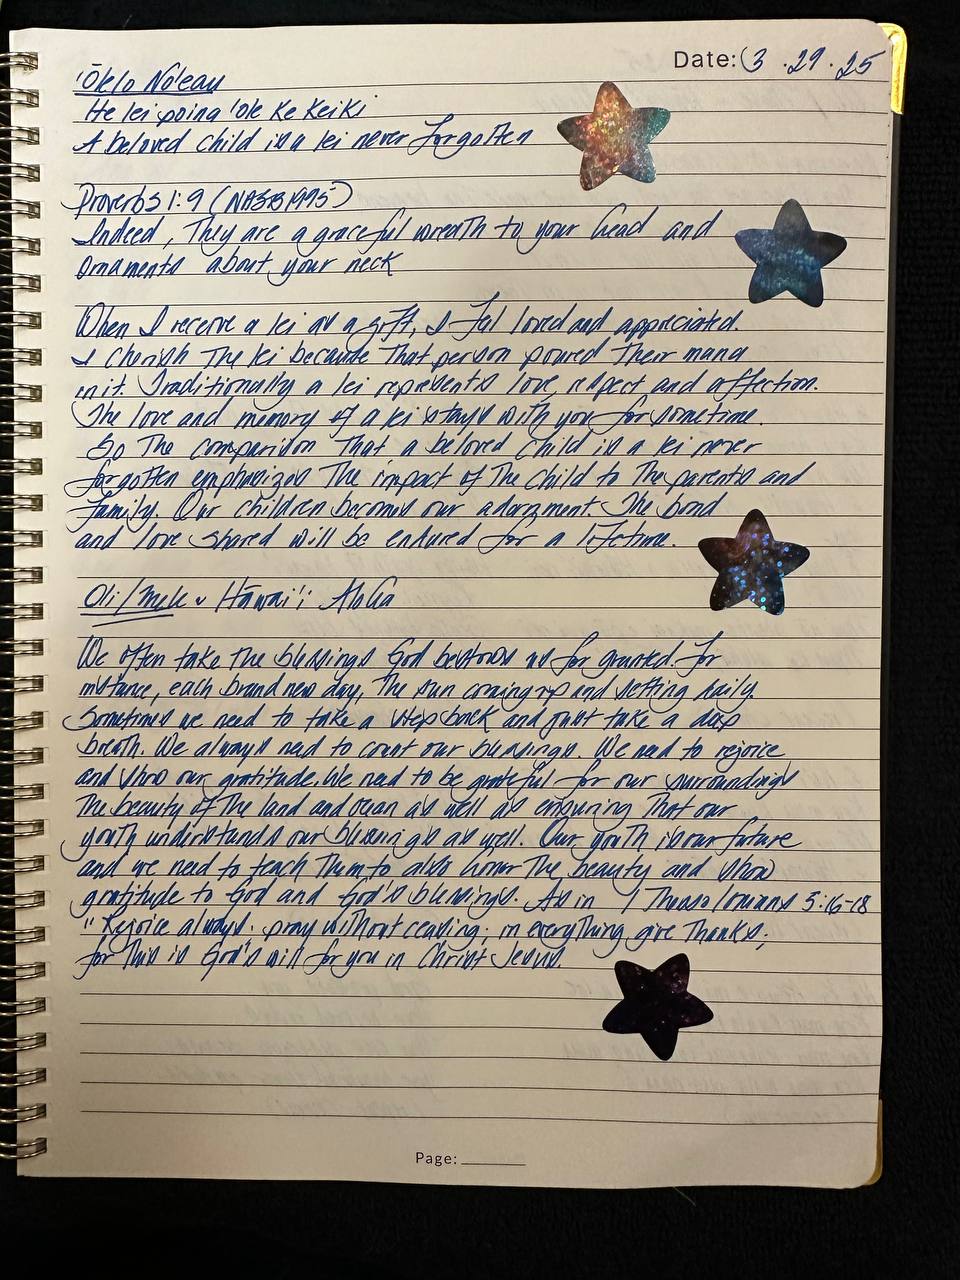 Date: 3.29.25
'Ōlelo No'eau
He lei poina 'ole ke keiki
A beloved child is a lei never forgotten
Proverbs 1:9 (NASB1995)
Indeed, They are a graceful wreath to your head and
ornaments about your neck
When I receive a lei as a gift, I feel loved and appreciated.
I cherish The lei because That person poured Their mana
in it. Traditionally a lei represents love, respect and affection.
The love and memory of a lei stays with you for sometime.
So The comparison That a beloved child is a lei never
forgotten emphasizes The impact of The child to The parents and
family. Our children becomes our adornment. The bond
and love shared will be endured for a lifetime.
Oli/Mele Hawai'i Aloha
We often take The blessings God bestows us for granted. For
instance, each brand new day, The sun coming up and setting daily.
Sometimes we need to take a step back and just take a deep
breath. We always need to count our blessings. We need to rejoice
and show our gratitude. We need to be grateful for our surroundings
The beauty of The land and ocean as well as ensuring That our
youth understands our blessings as well. Our youth is our future
and we need to teach Them to also honor The beauty and show
gratitude to God and God's blessings. As in 1 Thessalonians 5:16-18
"Rejoice always; pray without ceasing; in everything give Thanks;
for This is God's will for you in Christ Jesus.
Page: